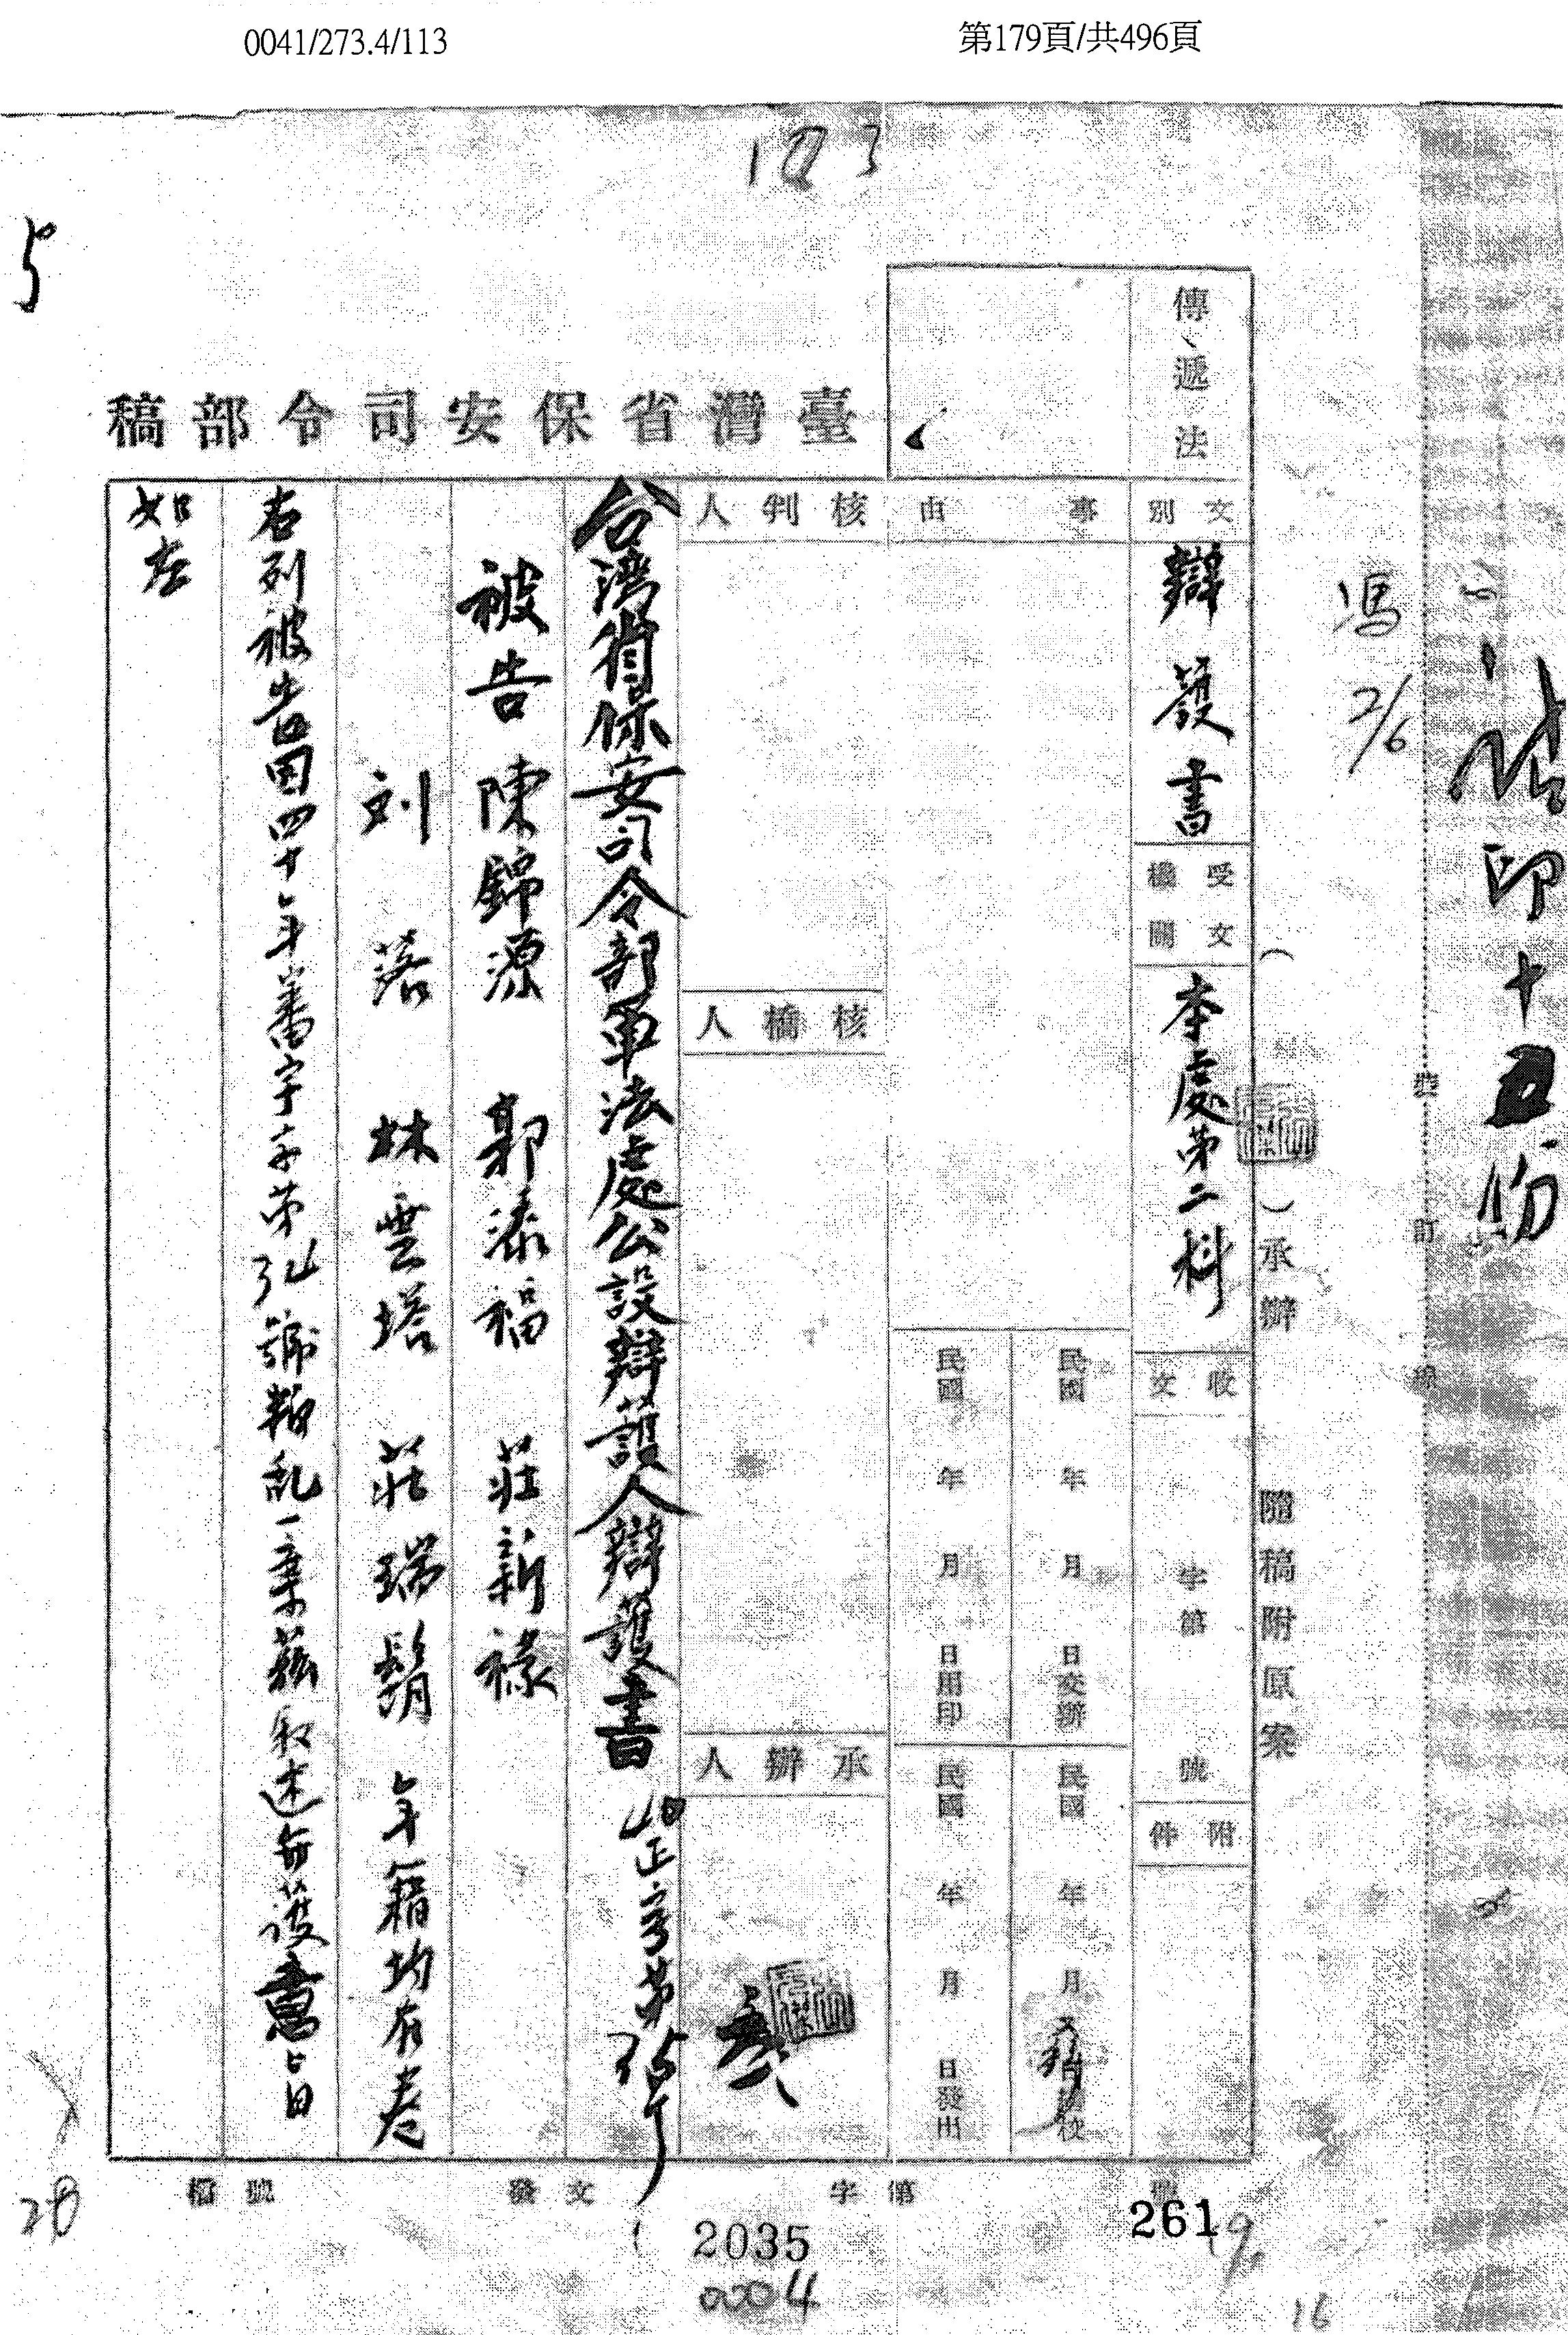 0041/273.4/113
第179頁/共496頁
傳遞法
臺灣省保安司令部稿
文別
辯護書
受文機關
本處第二科
收文
字第
號
附件
事由
民國 年 月 日交辦
民國 年 月 日用印
民國 年 月
民國 年 月 日發出
核判人
核稿人
承辦人
台灣省保安司令部軍法處公設辯護人辯護書
被告陳錦源 郭添福 莊新祿
刘落 林雲塔 莊瑞鬚 年籍均在卷
右列被告因四十年審字
號叛乱一案茲
如左
承辦
隨稿附原案
印十五份
馮
2/6
裝
訂
線
檔號
發文
字第
號
2035
261
0004
16